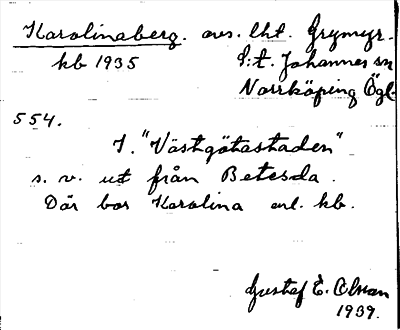 Karolinaberg. avs. lht. Grymyr.
kb 1935 S:t. Johannes sn
Norrköping Ögl.
554.
I. "Västgötastaden"
s. v. ut från Betesda.
Där bor Karolina enl. kb.
Gustaf E. Olman
1939.